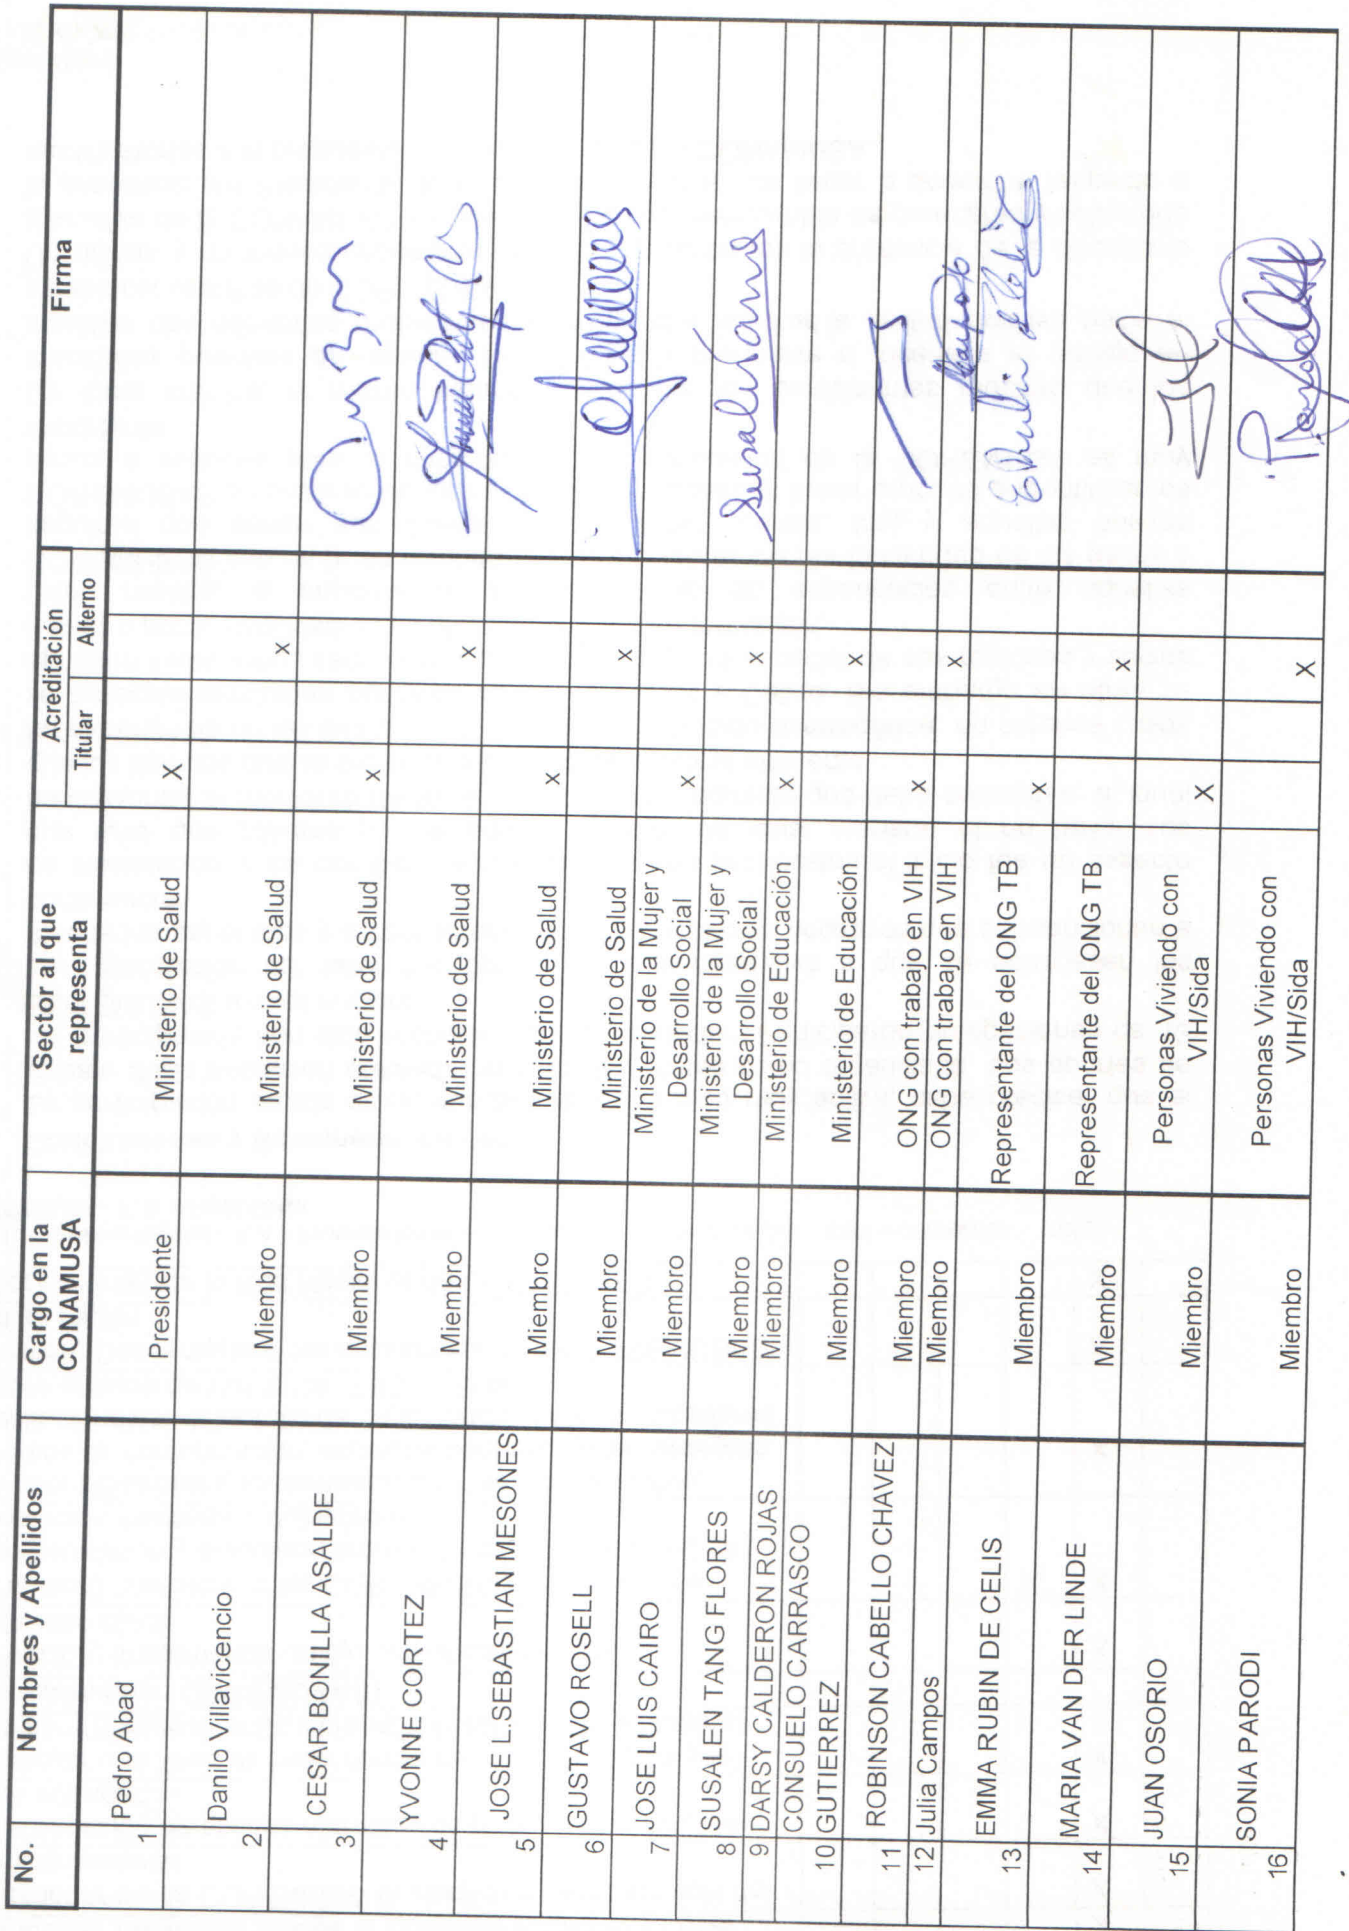 No. Nombres y Apellidos Cargo en la CONAMUSA Sector al que representa Acreditación Firma
Titular Alterno
1 Pedro Abad Presidente Ministerio de Salud X
2 Danilo Villavicencio Miembro Ministerio de Salud X
3 CESAR BONILLA ASALDE Miembro Ministerio de Salud X
4 YVONNE CORTEZ Miembro Ministerio de Salud X
5 JOSE L.SEBASTIAN MESONES Miembro Ministerio de Salud X
6 GUSTAVO ROSELL Miembro Ministerio de Salud X
7 JOSE LUIS CAIRO Miembro Ministerio de la Mujer y Desarrollo Social X
8 SUSALEN TANG FLORES Miembro Ministerio de la Mujer y Desarrollo Social X
9 DARSY CALDERON ROJAS Miembro Ministerio de Educación X
10 CONSUELO CARRASCO GUTIERREZ Miembro Ministerio de Educación X
11 ROBINSON CABELLO CHAVEZ Miembro ONG con trabajo en VIH X
12 Julia Campos Miembro ONG con trabajo en VIH X
13 EMMA RUBIN DE CELIS Miembro Representane del ONG TB X
14 MARIA VAN DER LINDE Miembro Representane del ONG TB X
15 JUAN OSORIO Miembro Personas Viviendo con VIH/Sida X
16 SONIA PARODI Miembro Personas Viviendo con VIH/Sida X